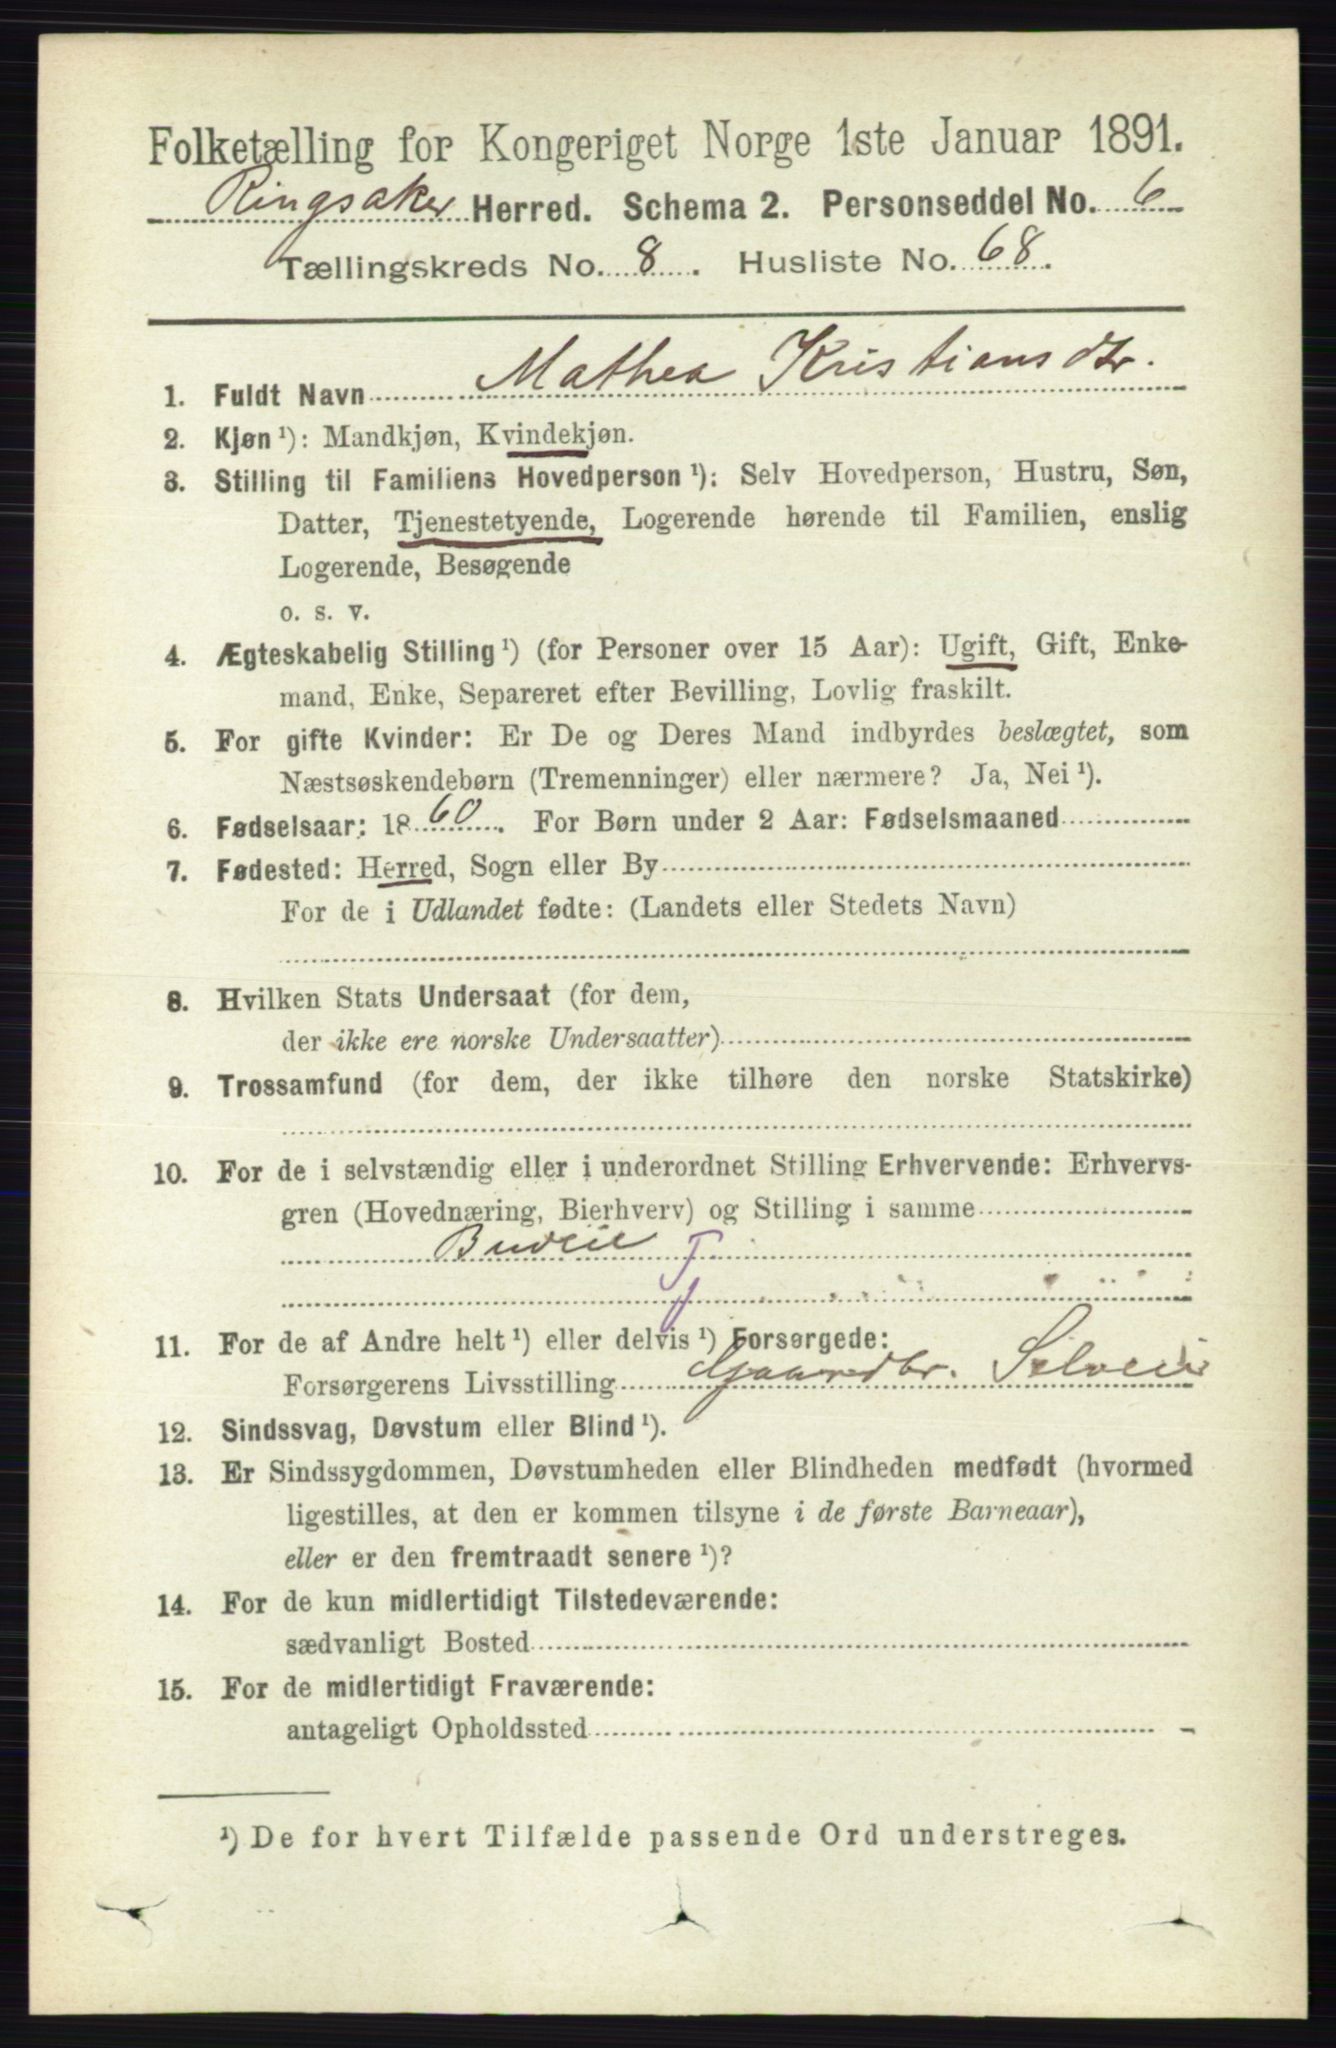 Folketælling for Kongeriget Norge 1ste Januar 1891.
Ringsaker Herred. Schema 2. Personseddel No. 6
Tællingskreds No. 8. Husliste No. 68.
1. Fuldt Navn Mathea Kristiansdtr.
2. Kjøn ¹): Mandkjøn, Kvindekjøn.
3. Stilling til Familiens Hovedperson ¹): Selv Hovedperson, Hustru, Søn,
Datter, Tjenestetyende, Logerende hørende til Familien, enslig
Logerende, Besøgende
o. s. v.
4. Ægteskabelig Stilling ¹) (for Personer over 15 Aar): Ugift, Gift, Enke-
mand, Enke, Separeret efter Bevilling, Lovlig fraskilt.
5. For gifte Kvinder: Er De og Deres Mand indbyrdes beslægtet, som
Næstsøskendebørn (Tremenninger) eller nærmere? Ja, Nei ¹).
6. Fødselsaar: 1860. For Børn under 2 Aar: Fødselsmaaned
7. Fødested: Herred, Sogn eller By
For de i Udlandet fødte: (Landets eller Stedets Navn)
8. Hvilken Stats Undersaat (for dem,
der ikke ere norske Undersaatter)
9. Trossamfund (for dem, der ikke tilhøre den norske Statskirke)
10. For de i selvstændig eller i underordnet Stilling Erhvervende: Erhvervs-
gren (Hovednæring, Bierhverv) og Stilling i samme
Budeie T
11. For de af Andre helt ¹) eller delvis ¹) Forsørgede:
Forsørgerens Livsstilling Gaardbr. Selveier
12. Sindssvag, Døvstum eller Blind ¹).
13. Er Sindssygdommen, Døvstumheden eller Blindheden medfødt (hvormed
ligestilles, at den er kommen tilsyne i de første Barneaar),
eller er den fremtraadt senere ¹)?
14. For de kun midlertidigt Tilstedeværende:
sædvanligt Bosted
15. For de midlertidigt Fraværende:
antageligt Opholdssted
¹) De for hvert Tilfælde passende Ord understreges.